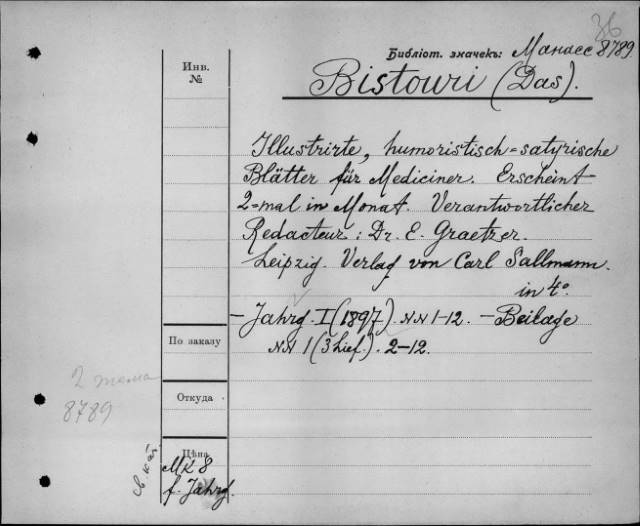 36
Библіот. значекъ: Манасс 8789.
Bistouri (Das).
Инв.
№
Illustrirte, humoristisch=satyrische
Blätter für Mediciner. Erscheint
2=mal in Monat. Verantwortlicher
Redacteur: Dr. E. Graetzer.
Leipzig. Verlag von Carl Sallmann.
in 4°.
— Jahrg. I (1897). NN 1-12. — Beilage
NN 1 (3 Lief.). 2-12.
По заказу
2 тома
8789
Откуда
Цѣна
св. кат.
Mk 8
f. Jahrg.